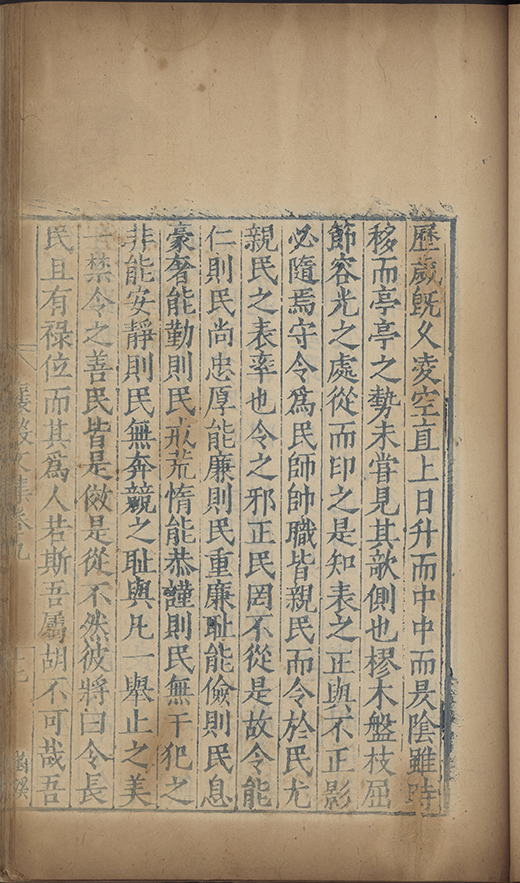 歷歲旣乆凌空直上日升而中中而昃陰雖時
移而亭亭之勢未嘗見其欹側也樛木盤枝屈
節容光之處從而印之是知表之正與不正影
必隨焉守令爲民師帥職皆親民而令於民尤
親民之表率也令之邪正民罔不從是故令能
仁則民尚忠厚能廉則民重廉耻能儉則民息
豪奢能勤則民戒荒惰能恭謹則民無干犯之
非能安靜則民無奔競之耻與凡一舉止之美
一禁令之善民皆是倣是從不然彼將曰令長
民且有祿位而其爲人若斯吾屬胡不可哉吾
襄毅文集卷九